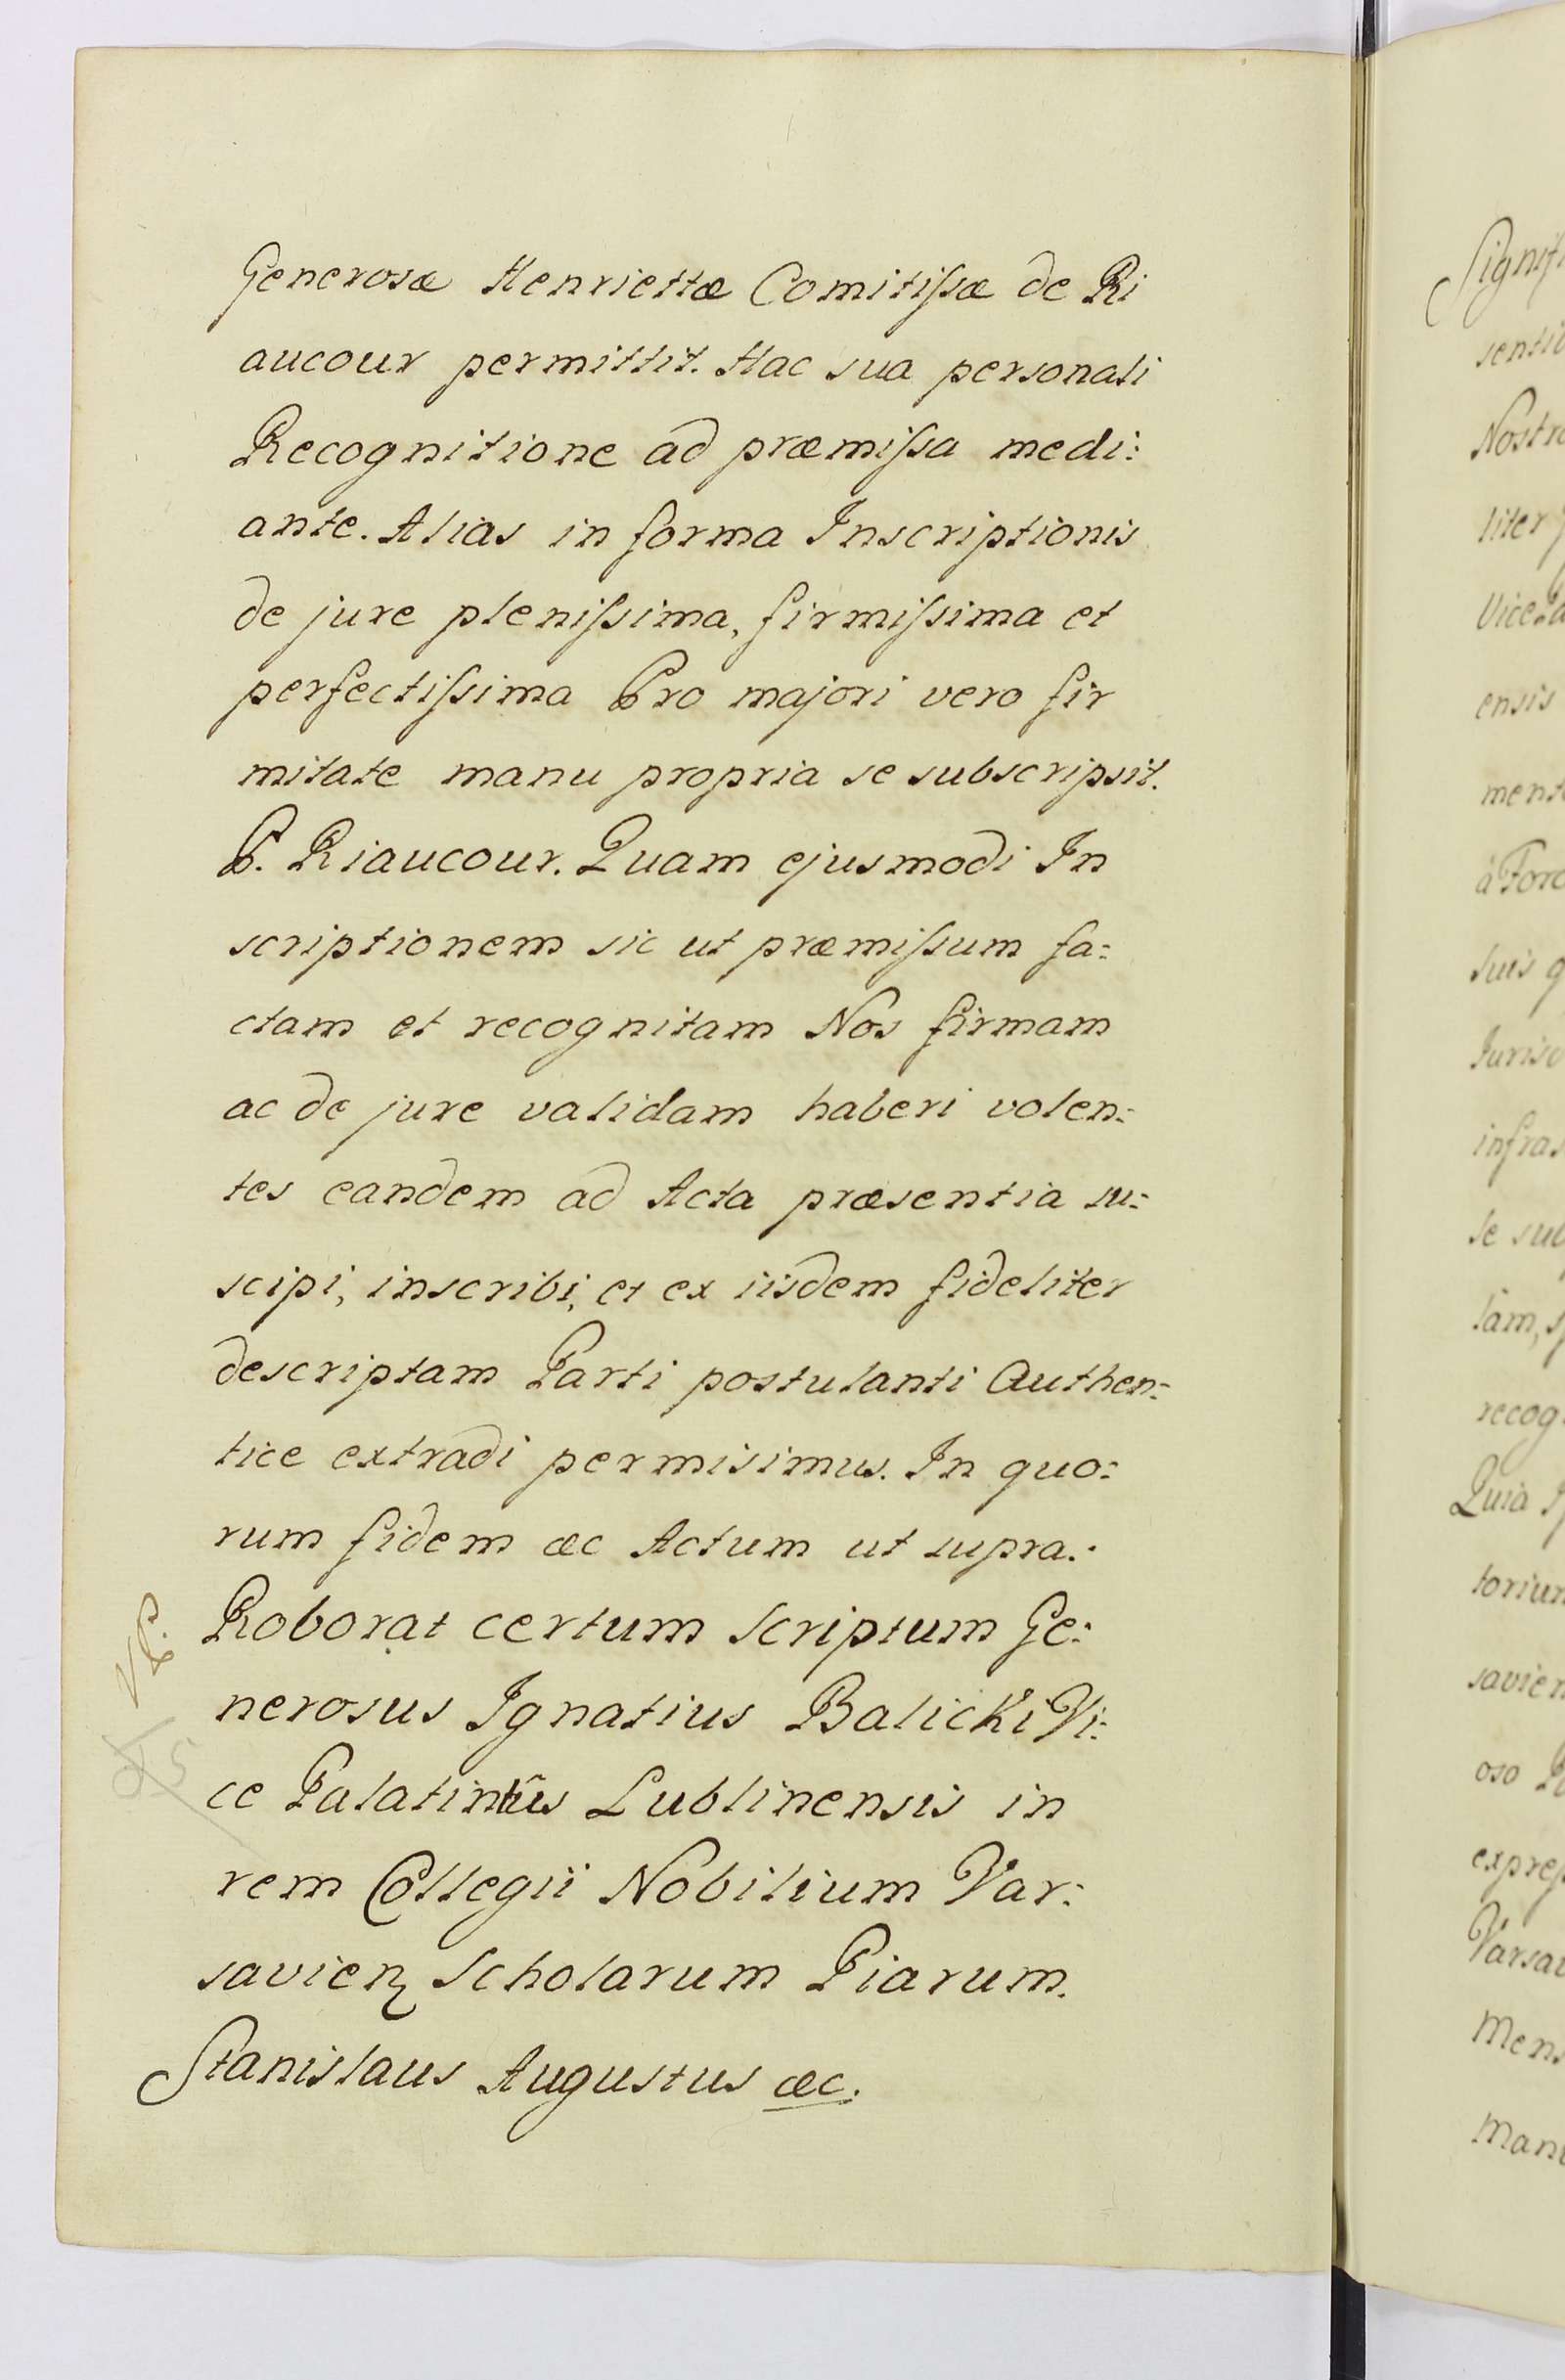 Generosæ Henriettæ Comitiſsæ de Ri
aucour permittit. Hac sua personali
Recognitione ad præmiſsa medi:
ante. Alias in forma Inscriptionis
de jure pleniſsima, firmiſsima et
perfectiſsima Pro majori vero fir
mitate manu propria se subscripsit.
P. Riaucour. Quam ejusmodi In
scriptionem sic ut præmiſsum fa:
ctam et recognitam Nos firmam
ac de jure validam haberi volen:
tes eandem ad Acta præsentia su:
scipi, inscribi, et ex iisdem fideliter
descriptam Parti postulanti Authen:
tice extradi permisimus. In quo:
rum fidem æc Actum ut supra.
Roborat certum scriptum Ge:
nerosus Ignatius Balicki Vi:
ce Palatinûs Lublinensis in
rem Collegii Nobilium Var:
savien scholarum Piarum.
Stanislaus Augustus æc.
Signif
sentib
Nostra
liter
Vice
ensis
ment
suis q
Jurisd
infras
se sub
recog
Quia
torium
savien
oso
Varsav
Mens
Manu